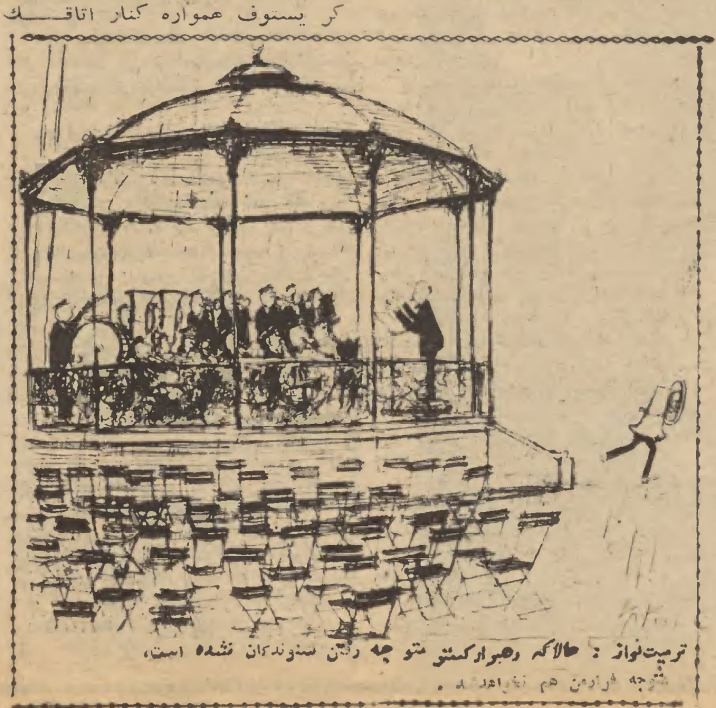 کر یستوف همواره کنار اتاقـــــك
ترمیت‌نواز : حالا که رهبر ارکستر متو جه رفتن شنوندگان نشده است،
متوجه فرارمن هم نخواهدشد .